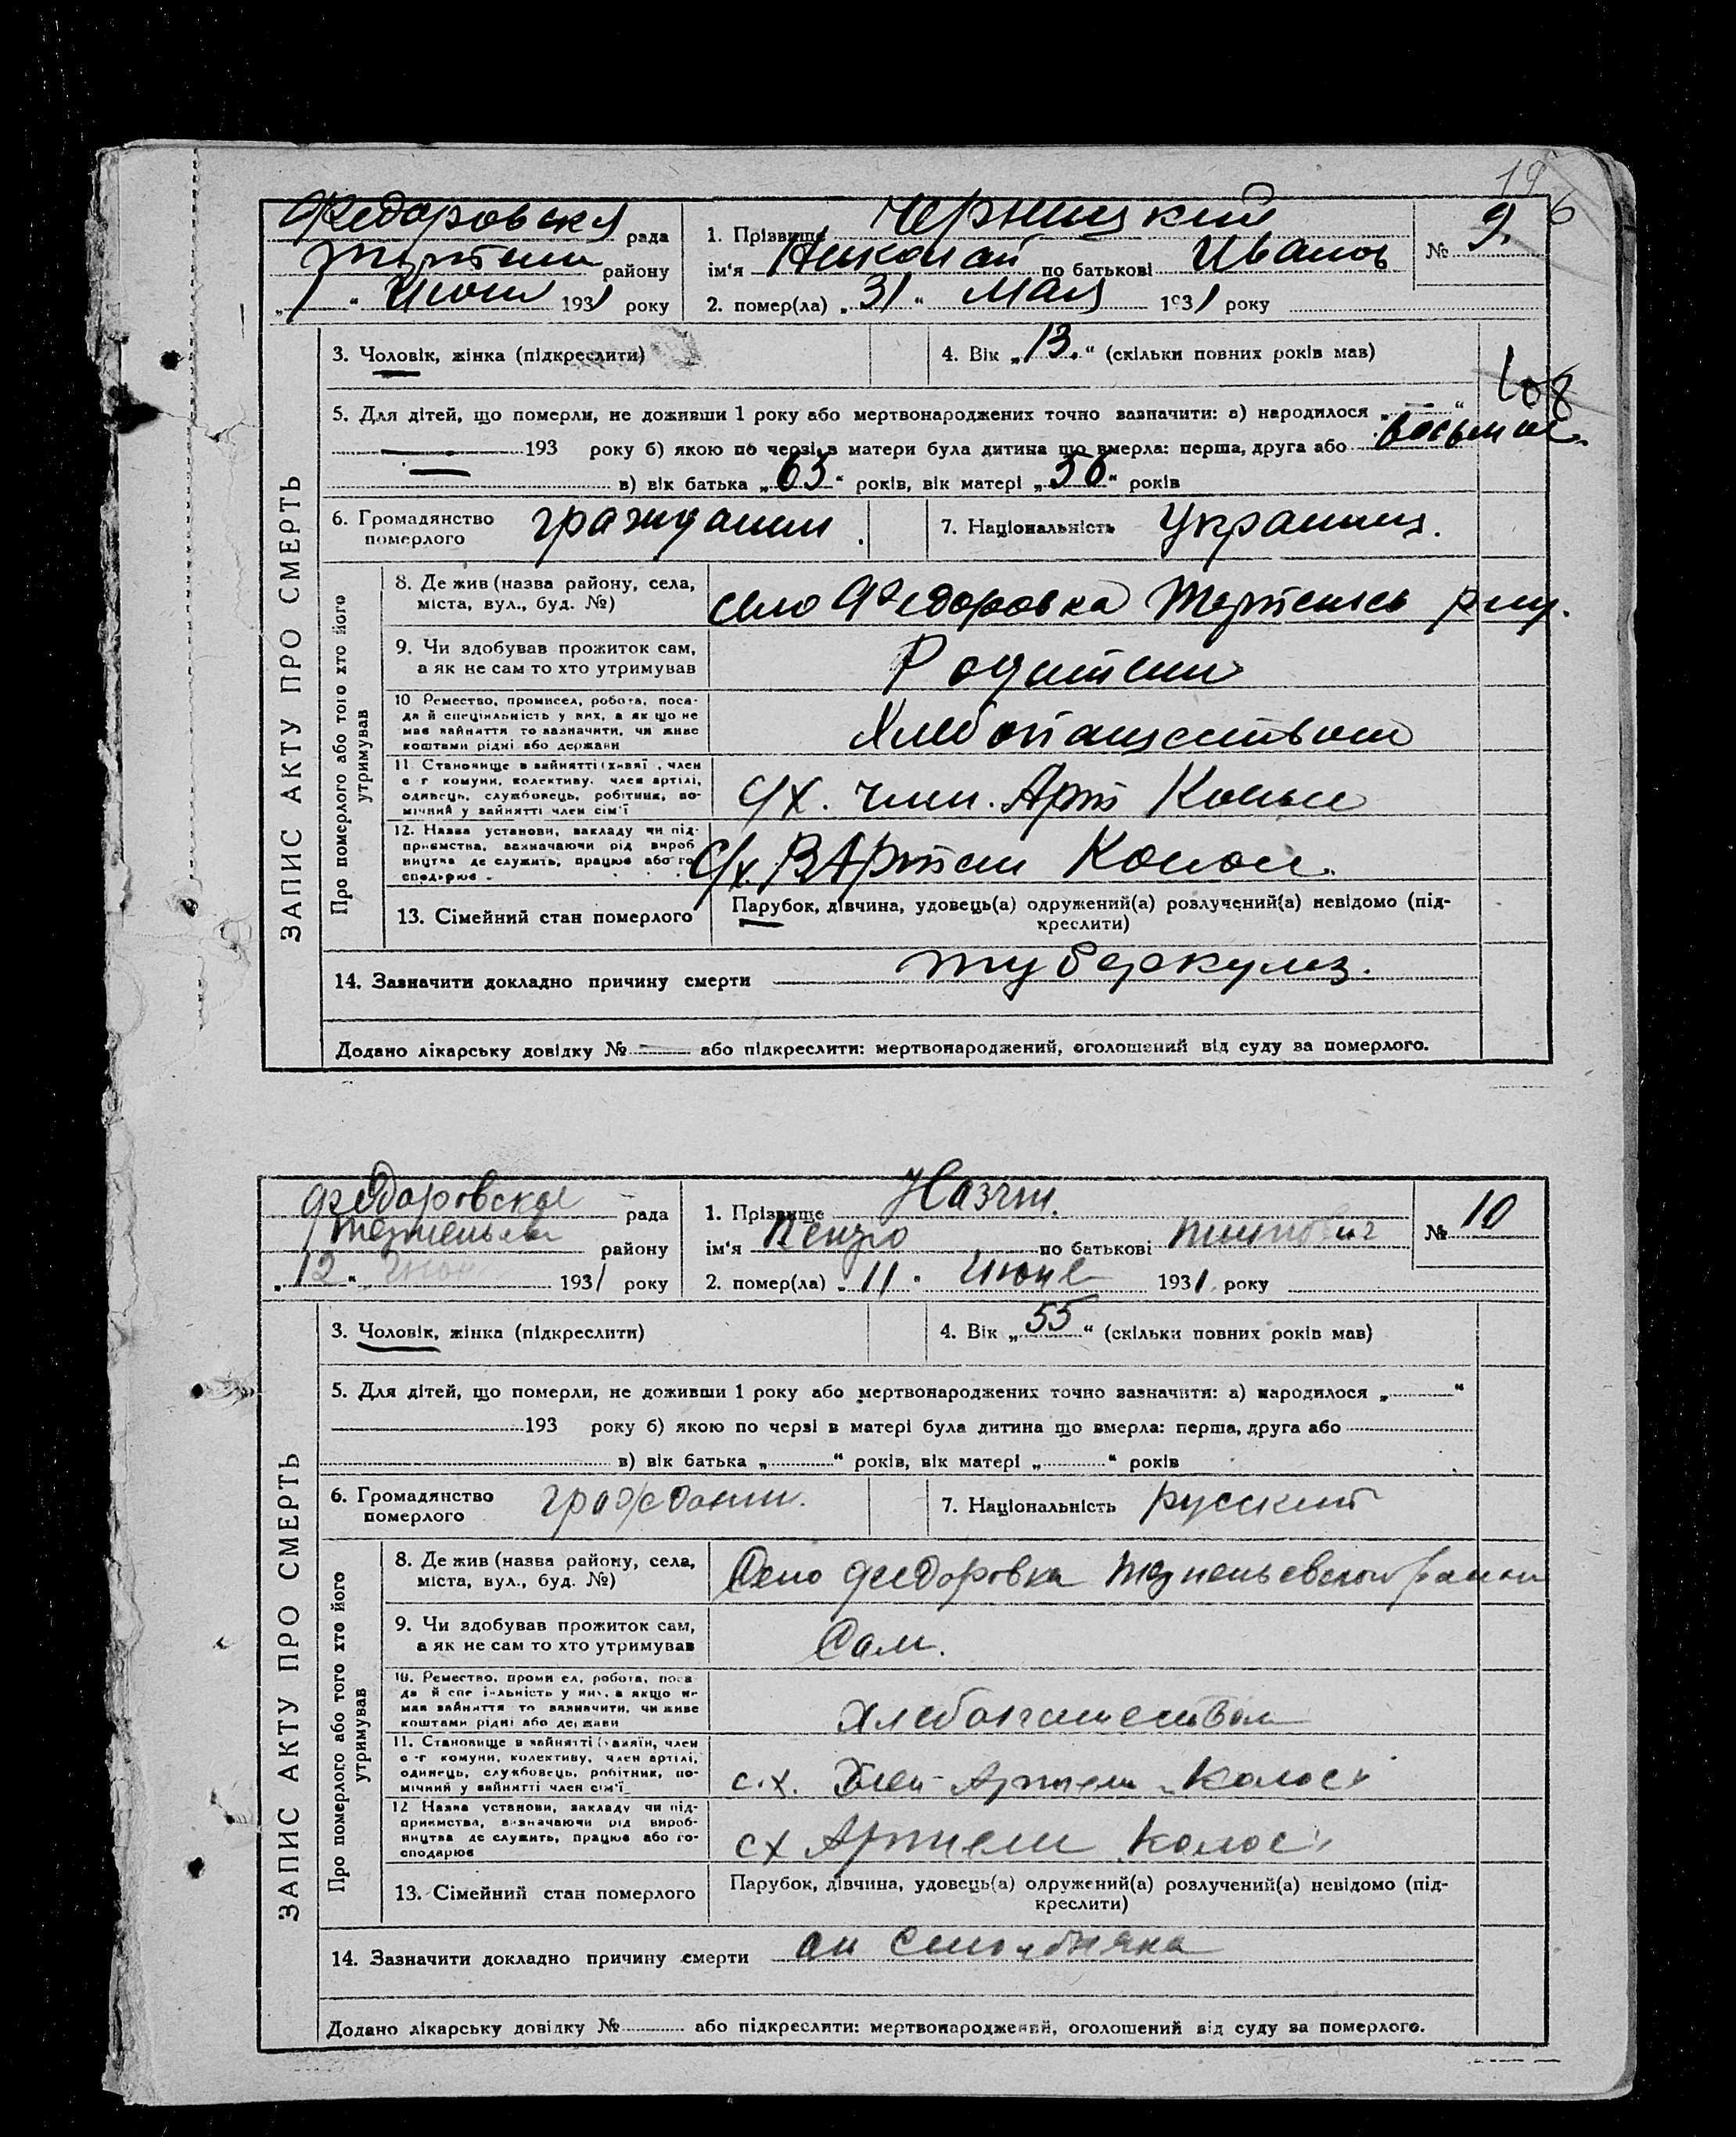 19
6
Федоровская рада
району
1 " Июня 1931 року
1. Прізвище Черницкий
ім'я Николай по батькові Иванов
2. помер(ла) „ 31 " Мая 1931 року
№ 9.
ЗАПИС АКТУ ПРО СМЕРТЬ
3. Чоловік, жінка (підкреслити)
4. Вік „ 13. " (скільки повних років мав)
108
5. Для дітей, що померли, не доживши 1 року або мертвонароджених точно зазначити: а) народилося „ — "
— 193 року б) якою по черзі в матери була дитина що вмерла: перша, друга або восьмой.
— в) вік батька „ 63 " років, вік матері „ 56 " років
6. Громадянство
померлого
гражданин.
7. Національність Украинец.
Про померлого або того хто його
утримував
8. Де жив (назва району, села,
міста, вул., буд. №)
село Федоровка
9. Чи здобував прожиток сам,
а як не сам то хто утримував
Родители
10 Ремество, промисел, робота, поса-
да й спеціяльність у них, а як що не
мав зайняття то зазначити, чи живе
коштами рідні або держави
Хлебопашеством
11. Становище в зайнятті (хазяї , член
с г комуни, колективу, член артілі,
одинець, службовець, робітник, по-
мічний у зайнятті член сім'ї
с/х. член. Арт
12. Назва установи, закладу чи під-
приємства, зазначаючи рід вироб
ництва де служить, працює або го-
сподарює
с/х. В Артели
13. Сімейний стан померлого
Парубок, дівчина, удовець(а) одружений(а) розлучений(а) невідомо (під-
креслити)
14. Зазначити докладно причину смерти туберкулез.
Додано лікарську довідку № — або підкреслити: мертвонароджений, оголошений від суду за померлого.
Федоровская рада
району
„ 12 " Июня 1931 року
1. Прізвище
ім'я по батькові
2. помер(ла) „ 11 " Июня 1931 року
№ 10
ЗАПИС АКТУ ПРО СМЕРТЬ
3. Чоловік, жінка (підкреслити)
4. Вік „ 55 " (скільки повних років мав)
5. Для дітей, що померли, не доживши 1 року або мертвонароджених точно зазначити: а) народилося „ "
193 року б) якою по черзі в матері була дитина що вмерла: перша, друга або
в) вік батька „ " років, вік матері „ " років
6. Громадянство
померлого
гражданин.
7. Національність русский
Про померлого або того хто його
утримував
8. Де жив (назва району, села,
міста, вул., буд. №)
Село Федоровка
9. Чи здобував прожиток сам,
а як не сам то хто утримував
Сам.
10. Ремество, промисел, робота, поса-
да й спеціяльність у них, а якщо не
мав зайняття то зазначити, чи живе
коштами рідні або держави
Хлебопашеством
11. Становище в зайнятті (хазяїн, член
с-г комуни, колективу, член артілі,
одинець, службовець, робітник, по-
мічний у зайнятті член сім'ї
с.х. Член Артели „Колос"
12 Назва установи, закладу чи під-
приємства, зазначаючи рід вироб-
ництва де служить, працює або го-
сподарює
сх Артели „Колос"
13. Сімейний стан померлого
Парубок, дівчина, удовець(а) одружений(а) розлучений(а) невідомо (під-
креслити)
14. Зазначити докладно причину смерти от столбняка
Додано лікарську довідку № або підкреслити: мертвонароджений, оголошений від суду за померлого.